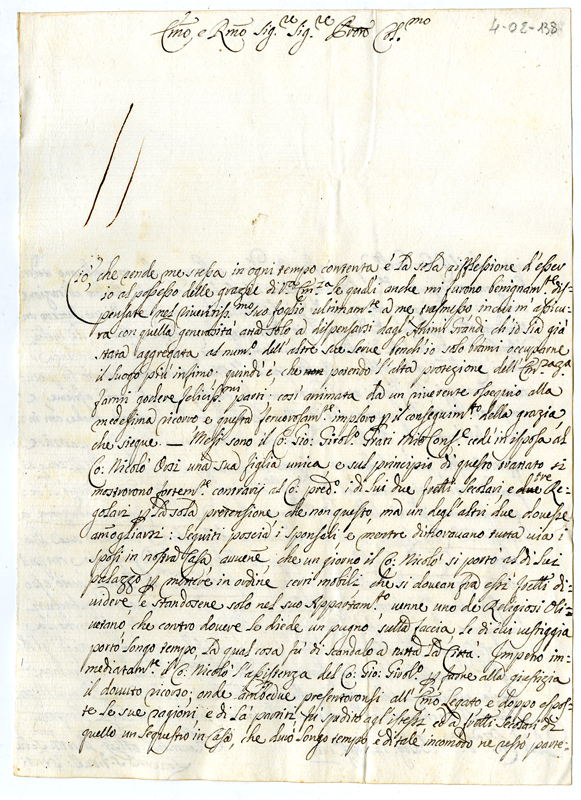 4-02-138
Emo, e Rmo Sig.re Sig.re Pron Col.mo
Ciò che rende me stessa in ogni tempo contenta è la sola riflessione d'esser
io al possesso delle grazie di V.ra Em.za le quali anche mi furono benignam.te di-
spensate nel riveritiss.mo suo foglio ultimam.te a me trasmesso in cui m'assicu-
ra con quella generosità ch'è solo a dispensarsi dagl'Animi Grandi ch'io sia già
stata aggregata al num.o dell'altre sue serve bench'io solo brami occuparne
il luogo più infimo; quindi è, che non potendo l'alta protezione dell'Em.za
farmi godere feliciss.mi parti; così animata da un riverente ossequio alla
medesima ricorro e questa fervorosam.te imploro p il conseguim.to della grazia
che siegue. — Mesi sono il Co: Gio: Girol.o Grati mio Cons.e cedè in isposa al
Co: Nicolò Orsi una sua figlia unica e sul principio di questo trattato si
mostrorono fortem.te contrarij al Co: pred.o i di lui due frelli secolari e due tre Re-
golari p la sola pretensione che non questo, ma un degl'altri due dovesse
amogliarsi: Seguiti poscia i sponsali e mentre ditrovavano tutta via i
sposi in nostra Casa avvenne che un giorno il Co: Nicolò si portò al di lui
palazzo p mettere in ordine certi mobili che si dovean fra essi frelli di-
videre, e standosene solo nel suo Appartam.to venne uno de Religiosi Oli-
vetano che contro dovere le diede un pugno sulla faccia le di cui vestiggia
portò longo tempo, la qual cosa fù di scandalo a tutta la Città. Imperò im-
mediatam.te il Co: Nicolò l'assistenza del Co: Gio: Girol.o p farne alla giustizia
il dovuto ricorso; onde ambedue presentoronsi all'Emo Legato e doppo espos-
te le sue ragioni, e di là partiti fù spedito agl'istessi ed a frelli secolari di
quello un sequestro in Casa, che durò longo tempo, e di tale incomodo ne restò parte-